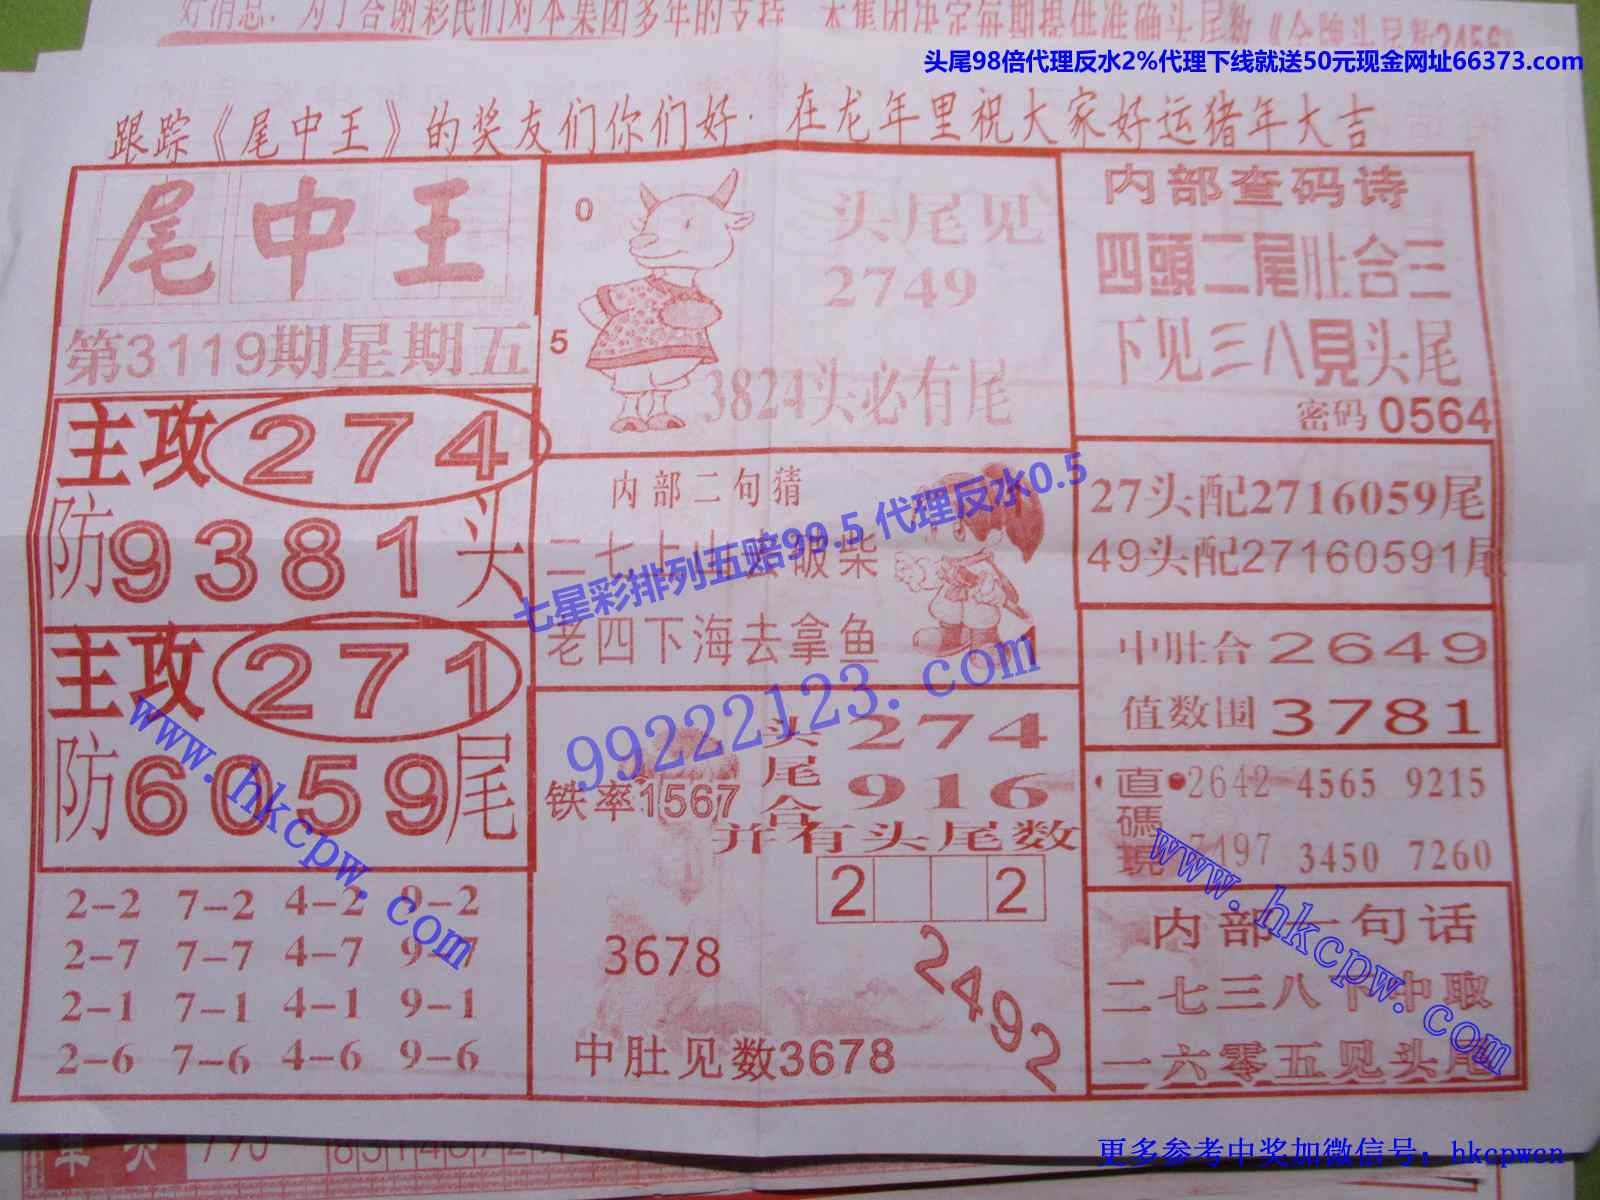 好消息：为了答谢彩民们对本集团多年的支持
头尾98倍代理反水2%代理下线就送50元现金网址66373.com
跟踪《尾中王》的奖友们你们好．在龙年里祝大家好运猪年大吉
尾中王
第3119期星期五
主攻274
防9381头
主攻271
防6059尾
2-2 7-2 4-2 9-2
2-7 7-7 4-7 9-7
2-1 7-1 4-1 9-1
2-6 7-6 4-6 9-6
0
5
头尾见
2749
3824头必有尾
内部二句猜
二七上山去破柴
老四下海去拿鱼
七星彩排列五赔99.5 代理反水0.5
99222123.com
铁率1567
头274
尾
合916
并有头尾数
2 2
3678
2492
中肚见数3678
内部查码诗
四頭二尾肚合三
下见三八見头尾
密码0564
27头配2716059尾
49头配27160591尾
中肚合2649
值数围3781
直碼現
2642 4565 9215
7197 3450 7260
内部一句话
二七三八下中取
一六零五见头尾
www.hkcpw.com
www.hkcpw.com
更多参考中奖加微信号：hkcpwcn